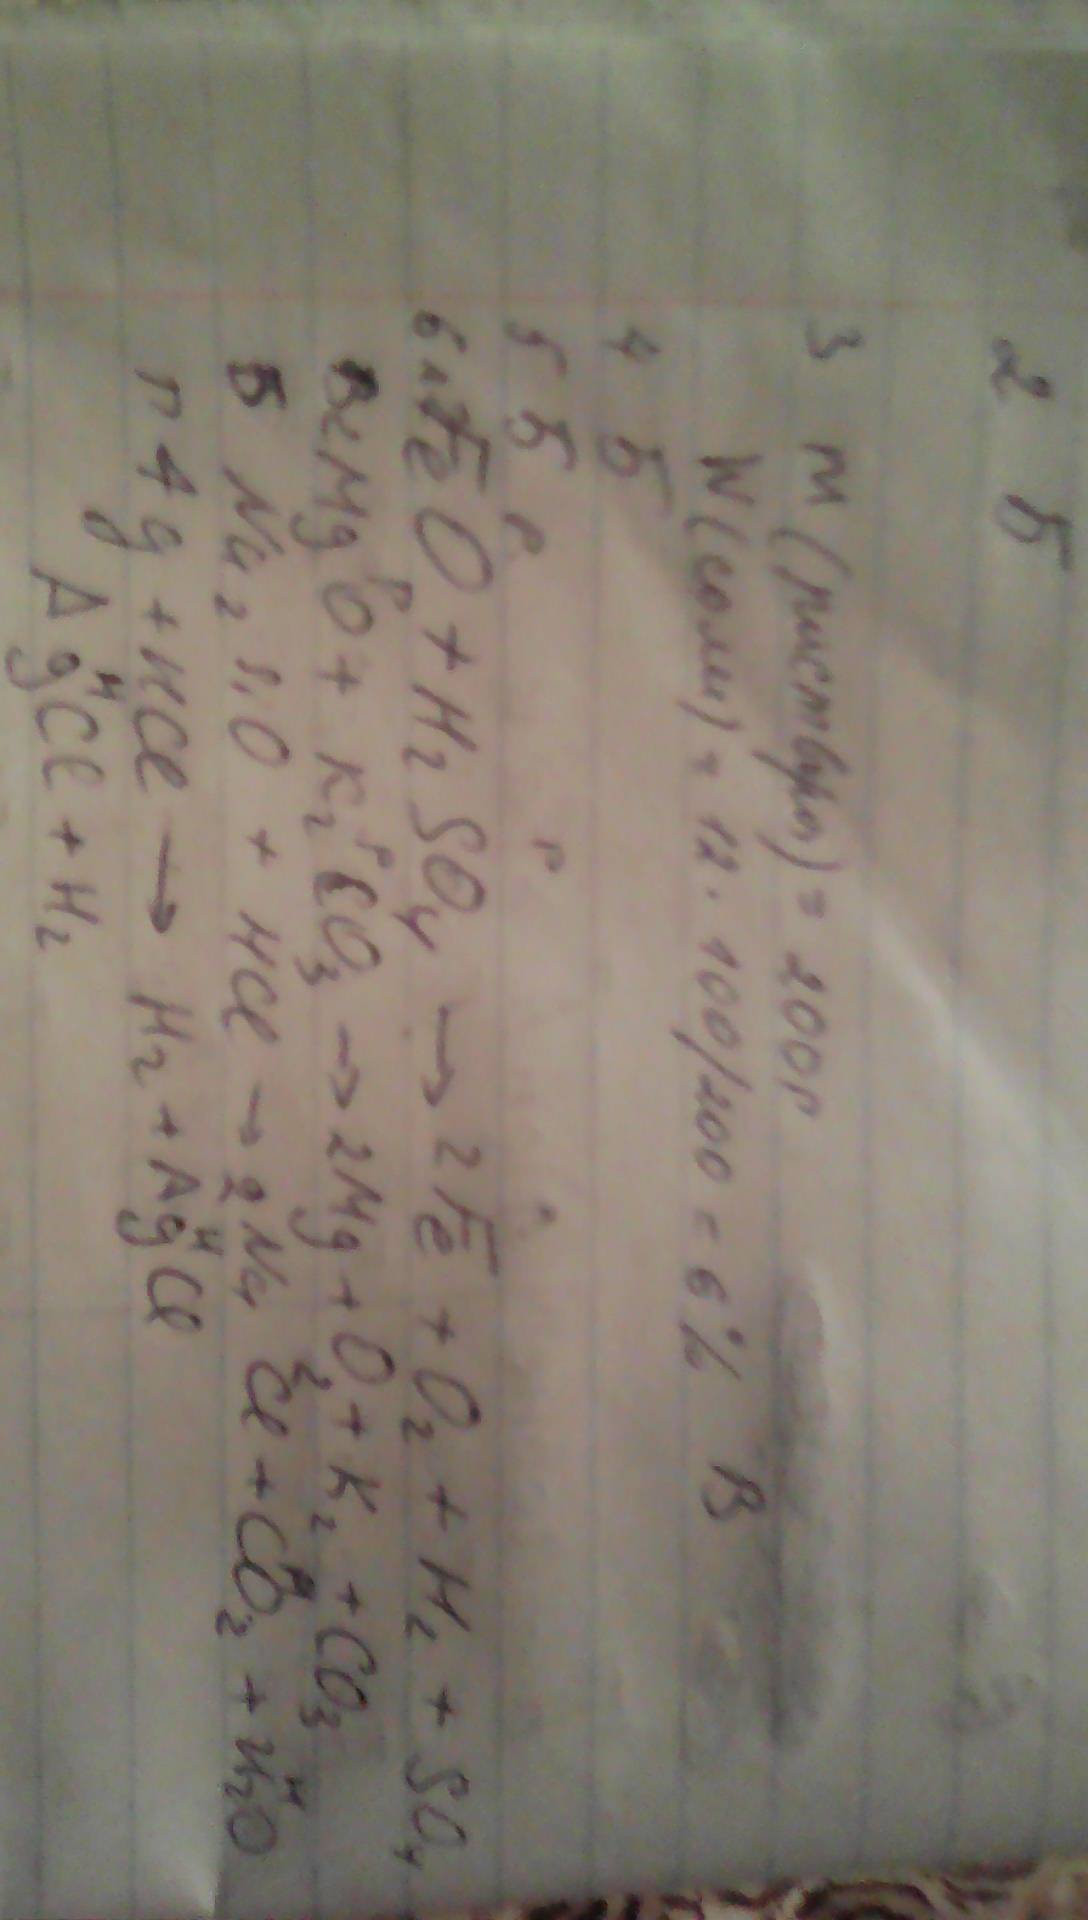 2 б
3 m(раствора) = 200г
W(соли) = 12 · 100/200 = 6% В
4 б
5 б
р р
6 FeO + H₂SO₄ → 2Fe + O₂ + H₂ + SO₄
р р
MgO + K₂CO₃ → 2Mg + O₂ + K₂ + CO₃
Б Na₂ O + HCl → 2Na Cl + CO₂ + H₂O
н
г Ag + HCl → H₂ + AgCl
н
AgCl + H₂
н